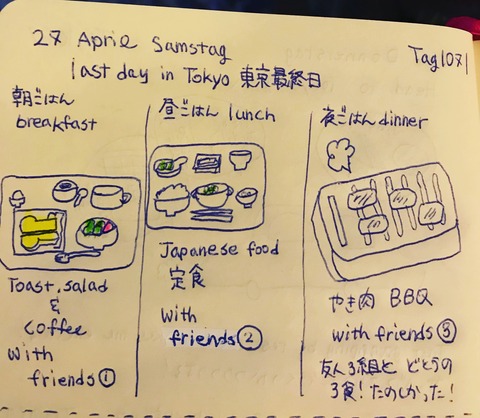 27 Aprie Samstag
Tag1071
last day in Tokyo 東京最終日
朝ごはん
breakfast
Toast, salad
&
coffee
with
friends①
昼ごはん lunch
Japanese food
定食
with
friends②
夜ごはん dinner
やき肉 BBQ
with friends③
友人3組と どとうの
3食! たのしかった!